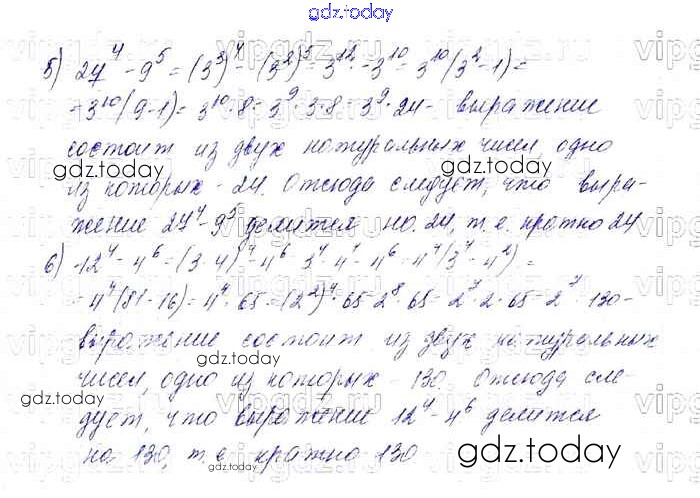 gdz.today
5) 27⁴ - 9⁵ = (3³)⁴ - (3²)⁵ = 3¹² - 3¹⁰ = 3¹⁰(3² - 1) =
= 3¹⁰(9 - 1) = 3¹⁰ · 8 = 3⁹ · 3 · 8 = 3⁹ · 24 - выражение
состоит из двух натуральных чисел, одно
из которых - 24. Отсюда следует, что выра-
жение 27⁴ - 9⁵ делится на 24, т.е. кратно 24
6) 12⁴ - 4⁶ = (3 · 4)⁴ - 4⁶ = 3⁴ · 4⁴ - 4⁶ = 4⁴(3⁴ - 4²) =
= 4⁴(81 - 16) = 4⁴ · 65 = (2²)⁴ · 65 = 2⁸ · 65 = 2⁷ · 2 · 65 = 2⁷ · 130 -
выражение состоит из двух натуральных
чисел, одно из которых - 130. Отсюда сле-
дует, что выражение 12⁴ - 4⁶ делится
на 130, т.е. кратно 130
gdz.today
gdz.today
gdz.today
gdz.today
gdz.today
gdz.today